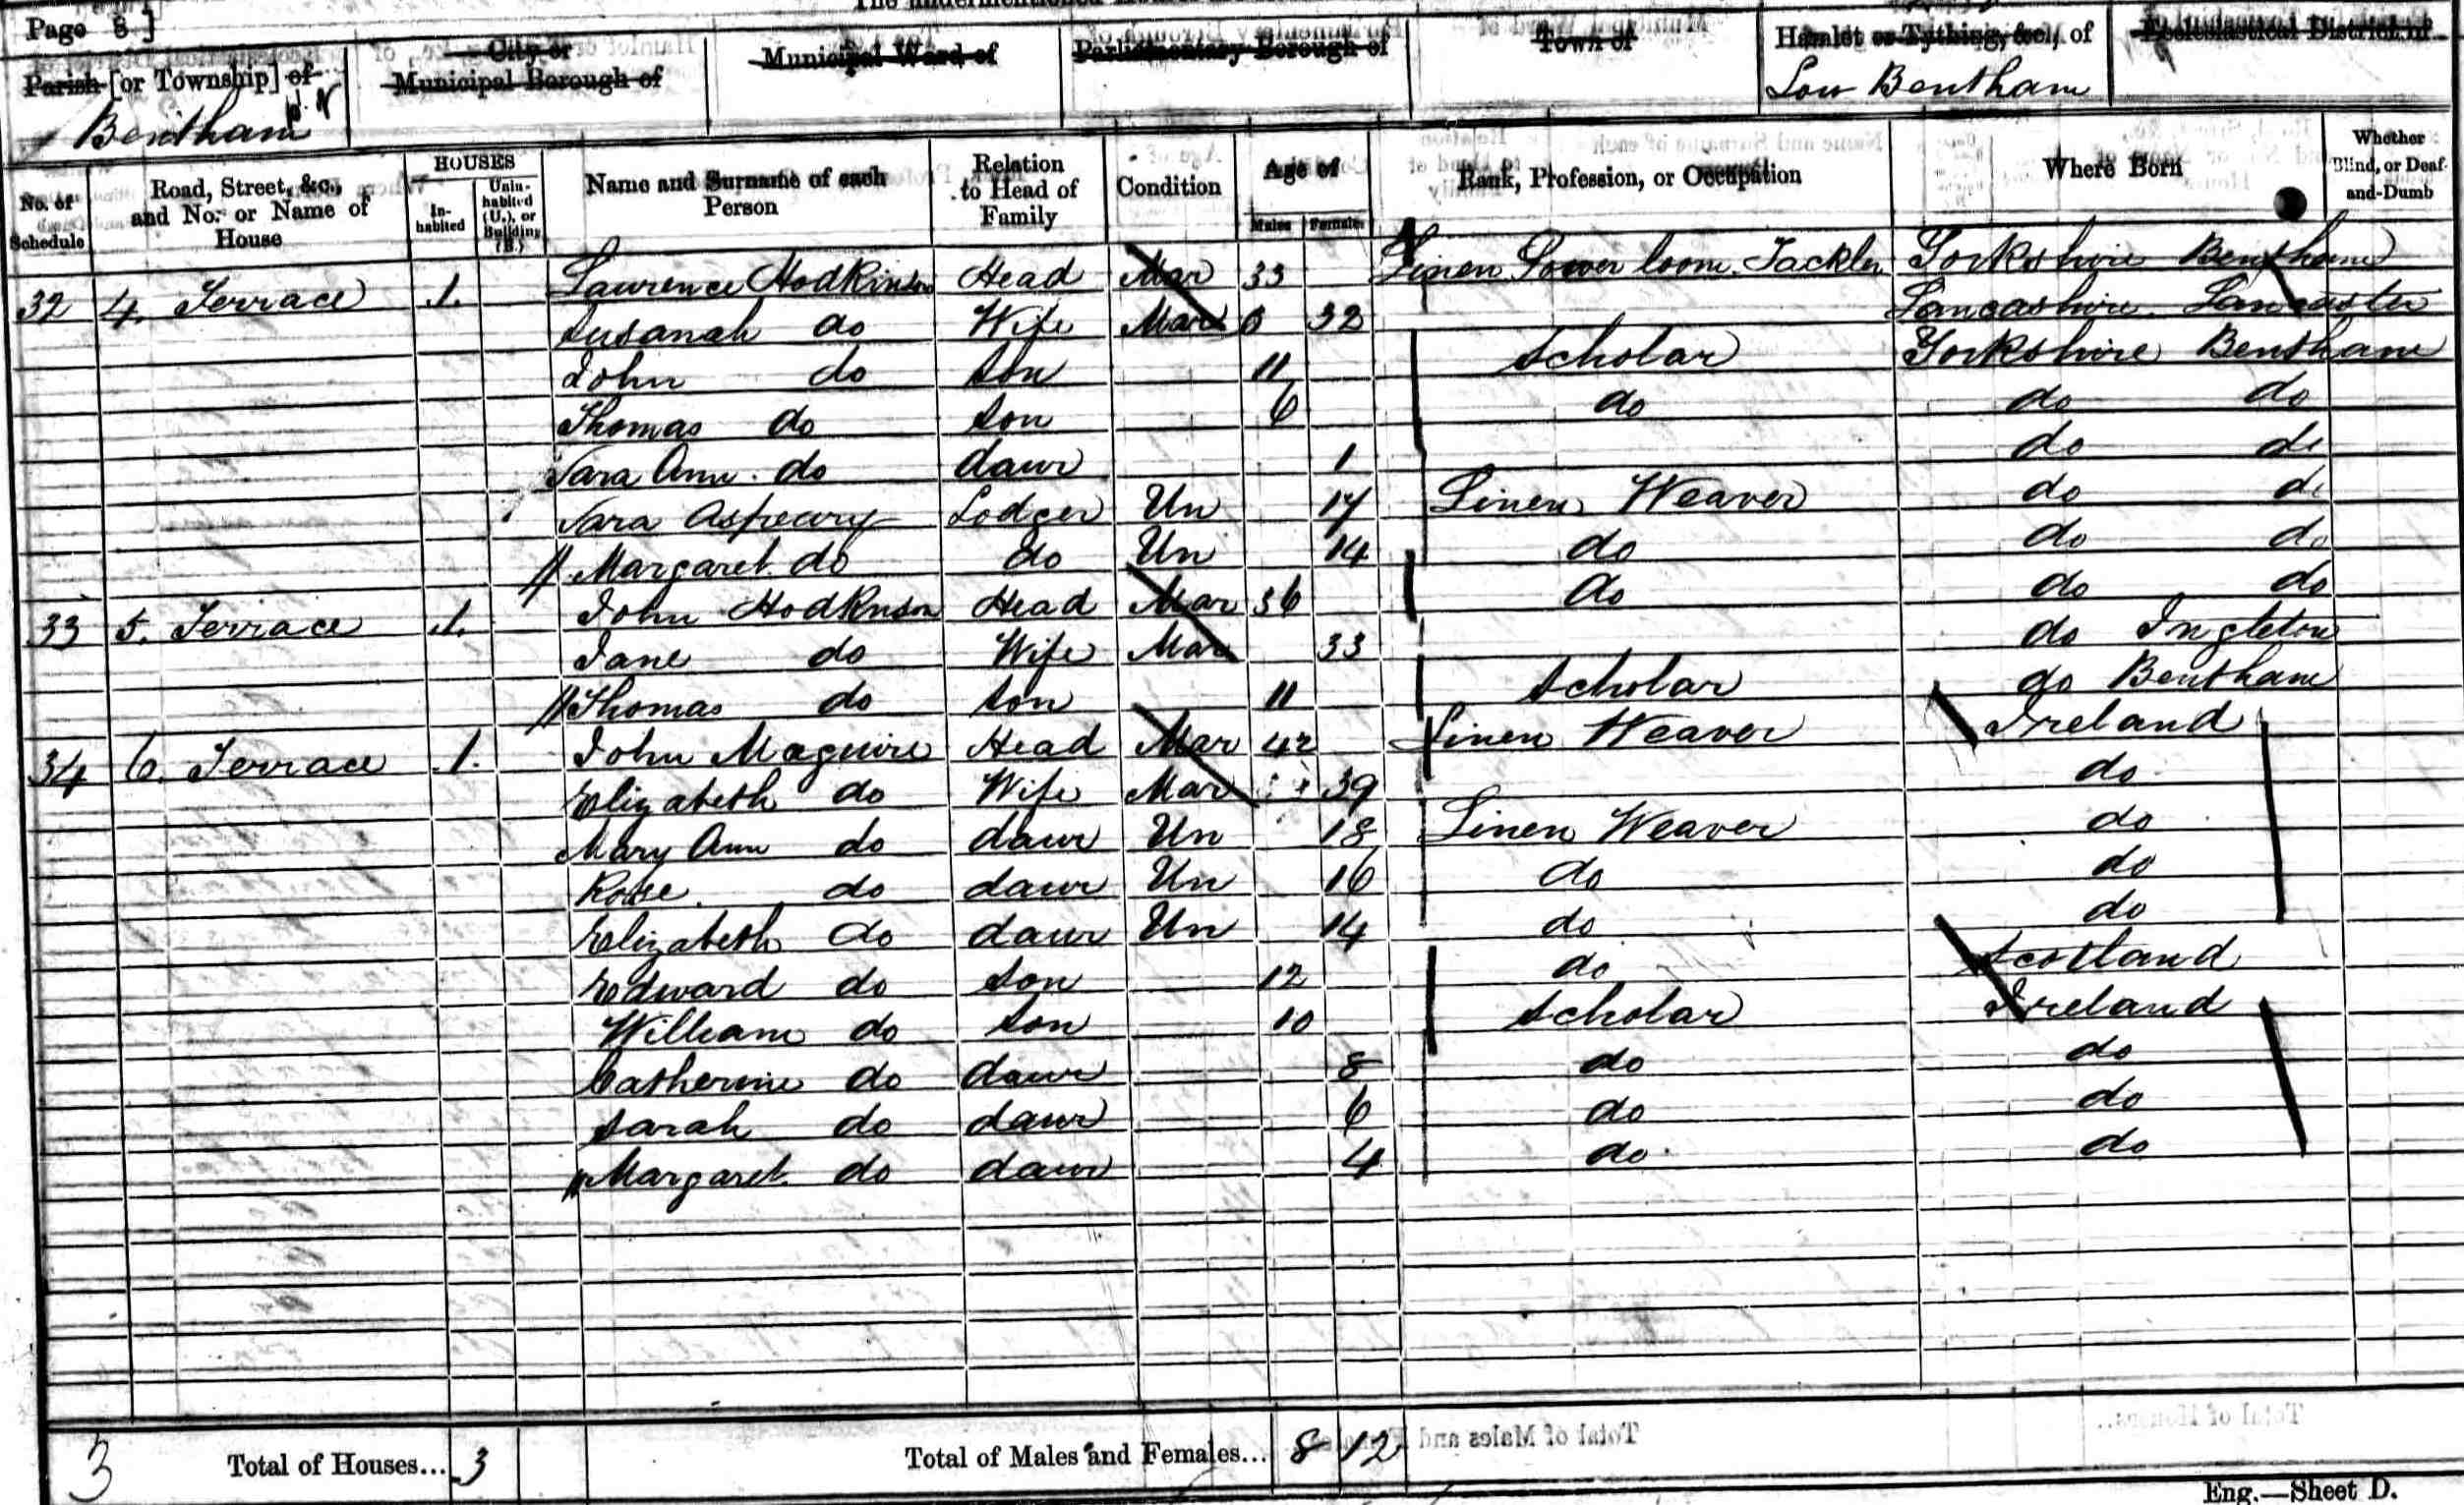 Page 8]
Parish [or Township] of
Bentham
City or
Municipal Borough of
Municipal Ward of
Parliamentary Borough of
Town of
Hamlet or Tything, &c., of
Low Bentham
Ecclesiastical District of
No. of Schedule
Road, Street, &c., and No. or Name of House
HOUSES
In-habited
Unin-habited (U.), or Building (B.)
Name and Surname of each Person
Relation to Head of Family
Condition
Age of
Males Females
Rank, Profession, or Occupation
Where Born
Whether Blind, or Deaf-and-Dumb
32 4. Terrace 1. Lawrence Hodkinson Head Mar 33 Linen Power loom Tackler Yorkshire Bentham
Susanah do Wife Mar 32 Lancashire Lancaster
John do Son 11 Scholar Yorkshire Bentham
Thomas do Son 6 do do do
Sara Ann do daur 1 do do
Sara Lodger Un 17 Linen Weaver do do
Margaret do do Un 14 do do do
33 5. Terrace 1. John Hodkinson Head Mar 36 do do do
Jane do Wife Mar 33 do Ingleton
Thomas do Son 11 Scholar do Bentham
34 6. Terrace 1. John Maguire Head Mar 42 Linen Weaver Ireland
Elizabeth do Wife Mar 39 do
Mary Ann do daur Un 18 Linen Weaver do
Rose do daur Un 16 do do
Elizabeth do daur Un 14 do do
Edward do Son 12 do Scotland
William do Son 10 Scholar Ireland
Catherine do daur 8 do do
Sarah do daur 6 do do
Margaret do daur 4 do do
3 Total of Houses... 3 Total of Males and Females... 8 12
Eng.—Sheet D.